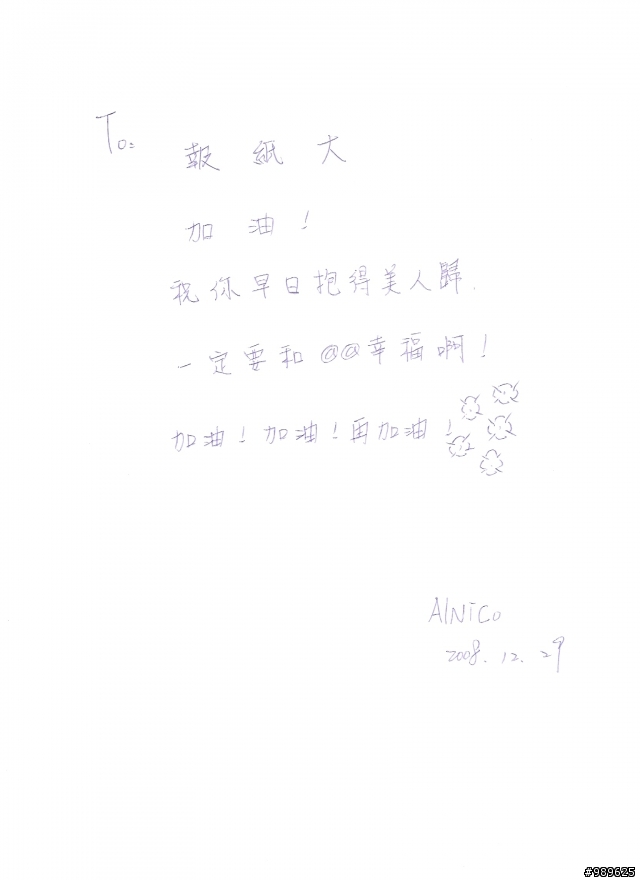 To:
報紙大
加油!
祝你早日抱得美人歸.
一定要和@@幸福啊!
加油!加油!再加油!
AlNiCo
2008.12.29
#989625